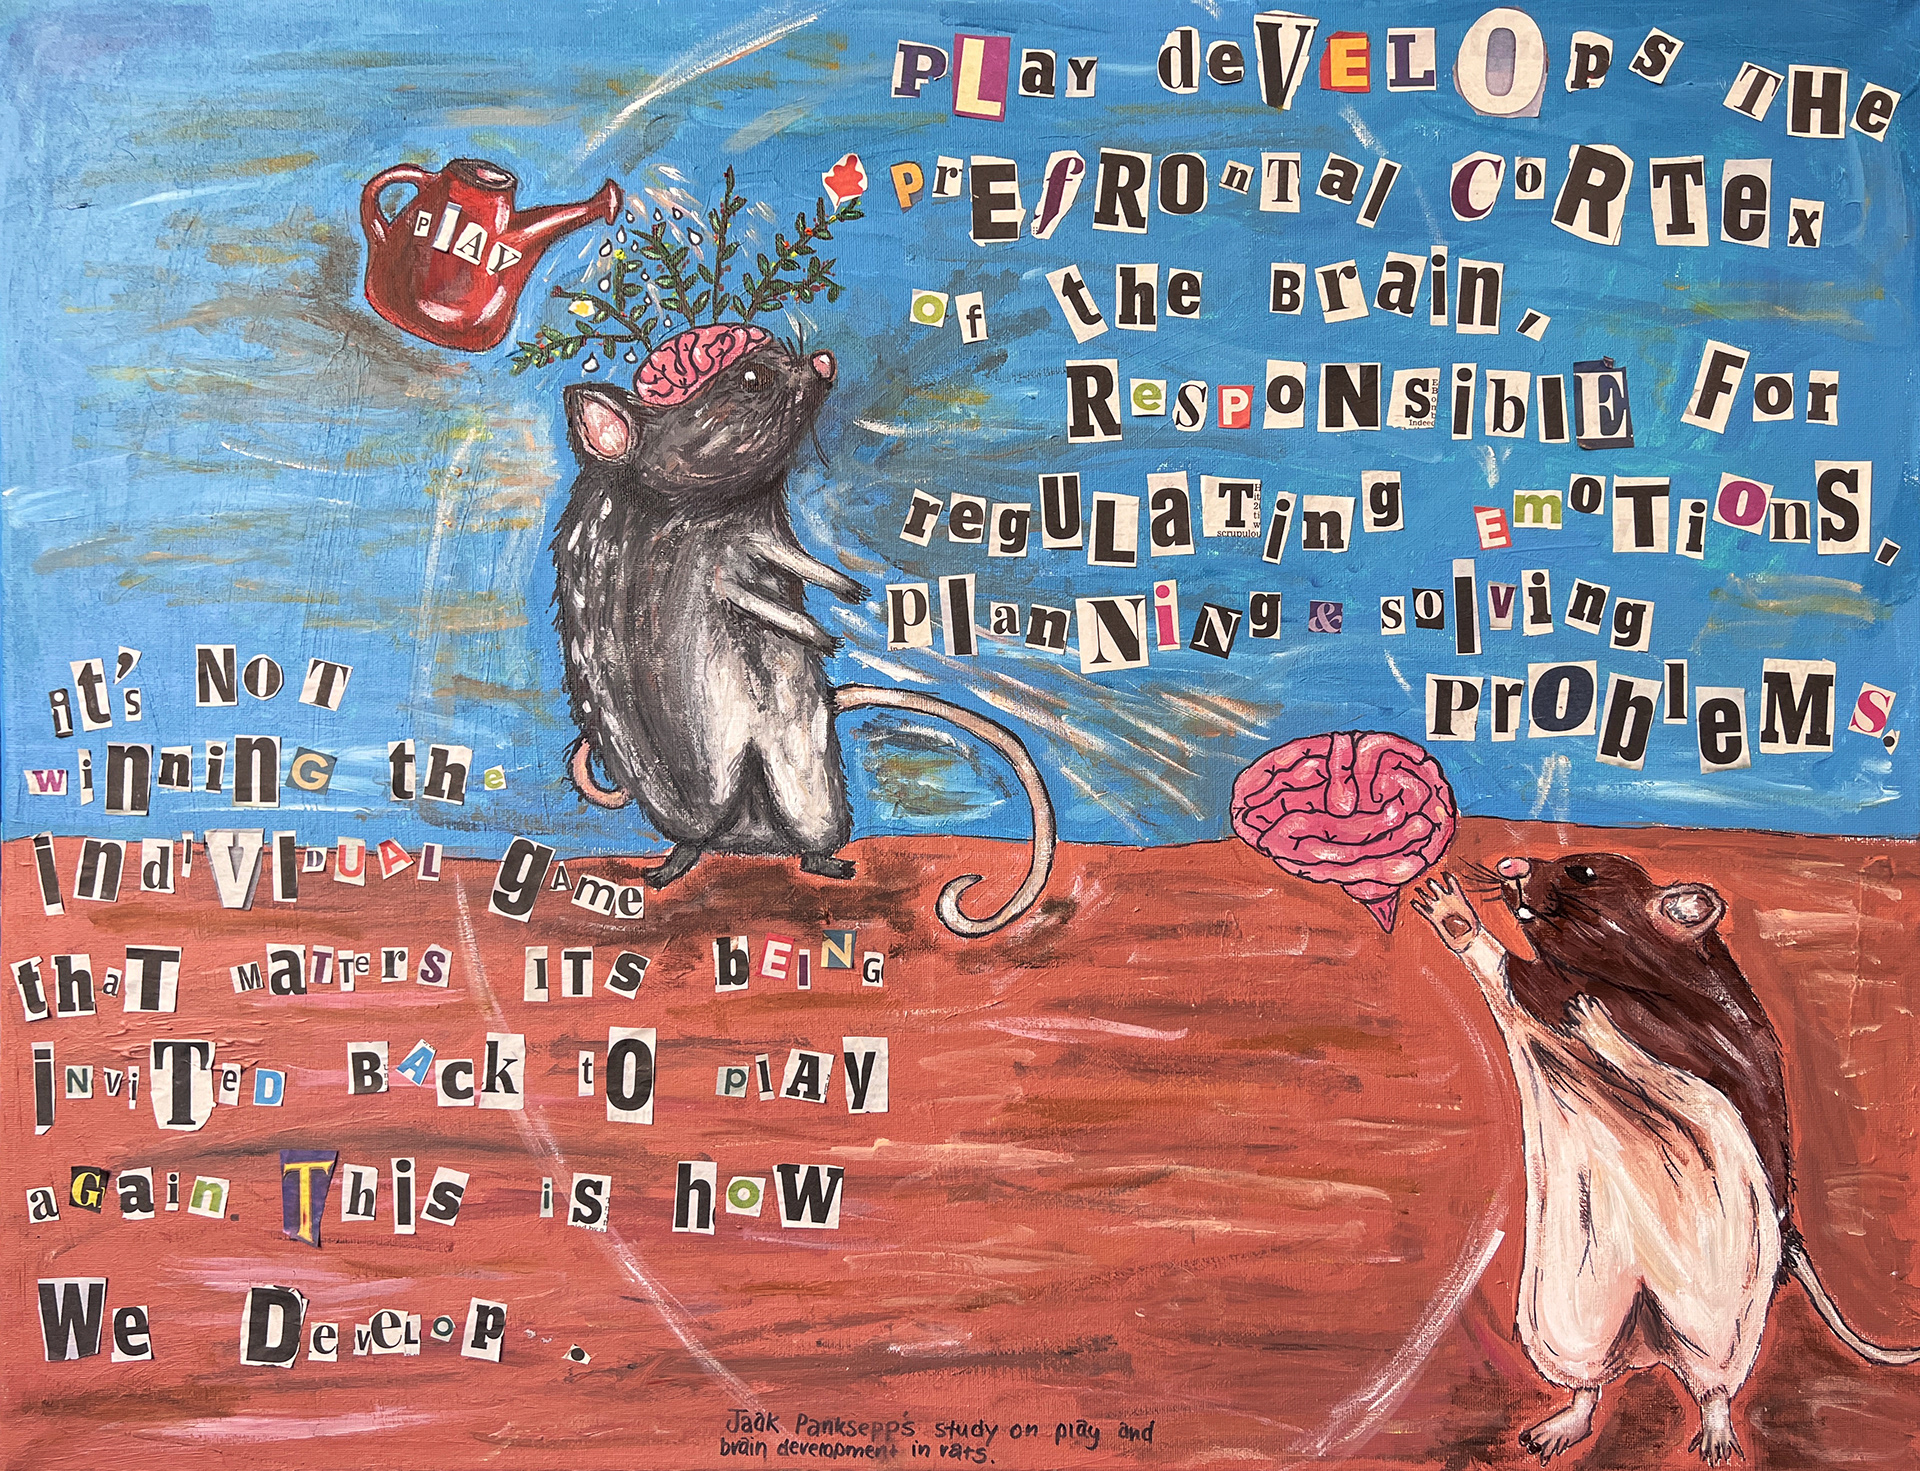 PLAY
PLay deVELOps THe
PrEfROnTal CoRTex
of the BRain,
ResPONSiblE For
regULaTing EmoTiOnS,
planNiNg & solving
PrObleMS.
it's NOT
winninG the
indiVIDUAL gAme
thaT MaTTers ITS bEiNG
inviTeD BAck tO plAy
aGain. This is hoW
We DeveLop.
Jaak Panksepp's study on play and
brain development in rats.